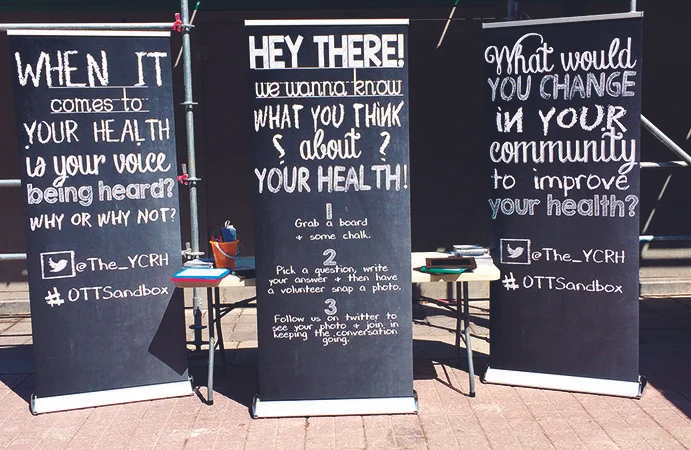 WHEN IT
comes to
YOUR HEALTH
is your voice
being heard?
WHY OR WHY NOT?
@The_YCRH
#OTTSandbox
HEY THERE!
we wanna know
WHAT YOU THINK
? about ?
YOUR HEALTH!
1
Grab a board
+ some chalk.
2
Pick a question, write
your answer + then have
a volunteer snap a photo.
3
Follow us on twitter to
see your photo + join in
keeping the conversation
going.
What would
YOU CHANGE
iN YOUR
community
to improve
your health?
@The_YCRH
#OTTSandbox